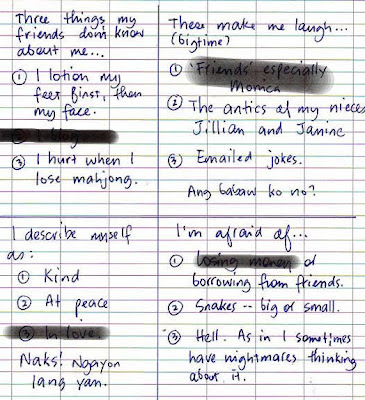 Three things my
friends don't know
about me...
① I lotion my
feet first, then
my face.
② I blog
③ I hurt when I
lose mahjong.
These make me laugh...
(bigtime)
① 'Friends' especially
Monica
② The antics of my nieces
Jillian and Janine
③ Emailed jokes.
Ang babaw ko no?
I describe myself
as:
① Kind
② At peace
③ In love
Naks! Ngayon
lang yan.
I'm afraid of...
① losing money or
borrowing from friends.
② Snakes -- big or small.
③ Hell. As in I sometimes
have nightmares thinking
about it.